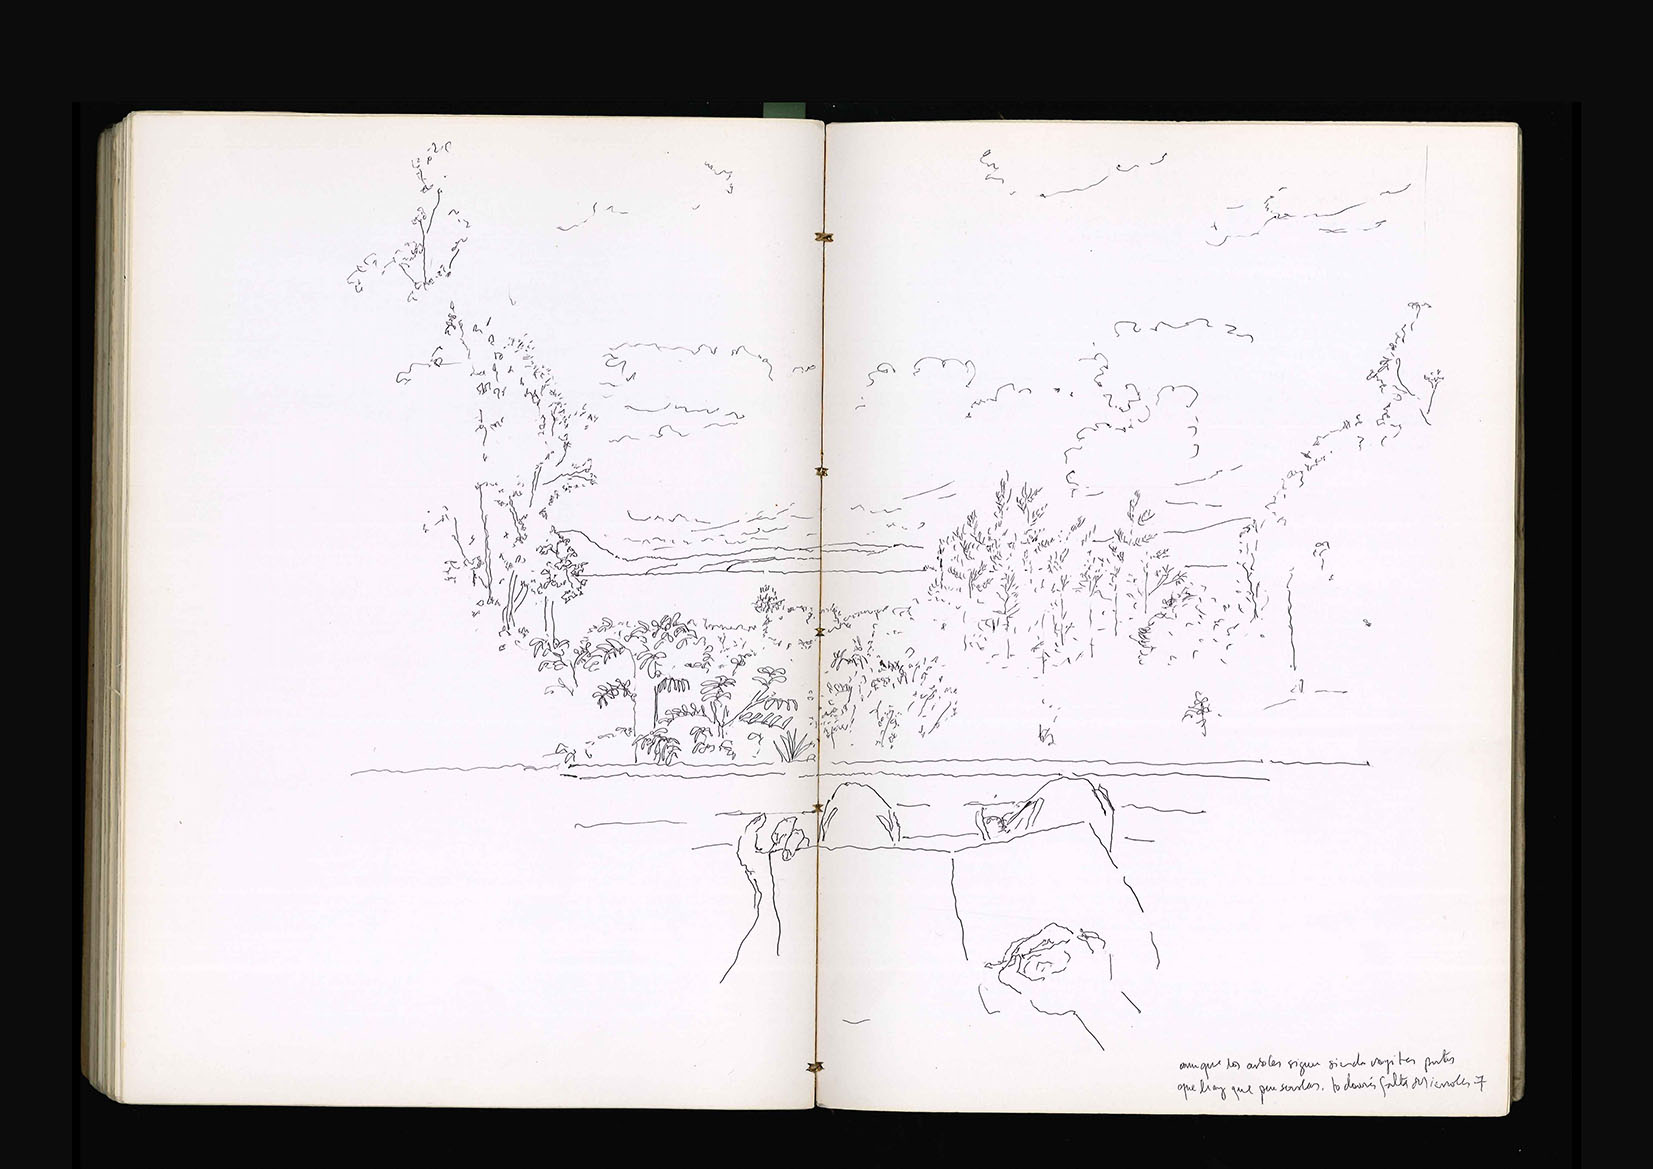 aunque los arboles siguen siendo rayitas
que hay que pensarlas. todavia falta Miercoles 7